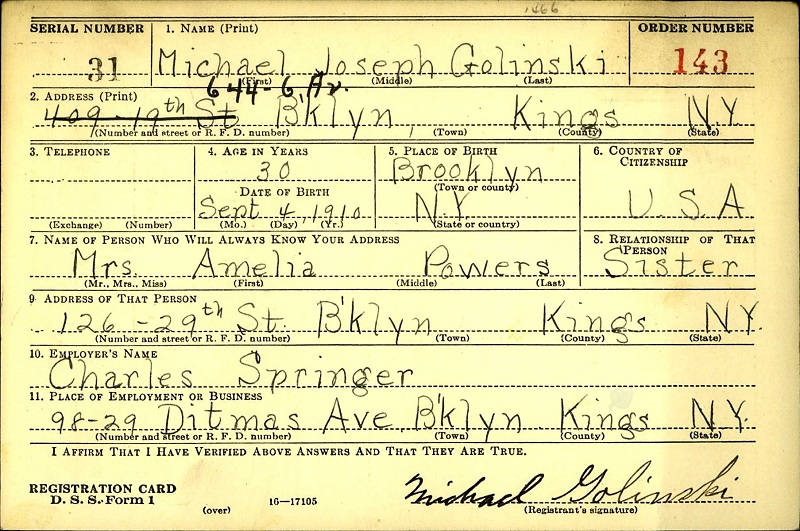 1466
SERIAL NUMBER 1. NAME (Print) ORDER NUMBER
31 Michael Joseph Golinski 143
(First) (Middle) (Last)
644-6 Av.
2. ADDRESS (Print)
409-19th St B'klyn, Kings N.Y.
(Number and street or R. F. D. number) (Town) (County) (State)
3. TELEPHONE 4. AGE IN YEARS 5. PLACE OF BIRTH 6. COUNTRY OF CITIZENSHIP
30 Brooklyn
DATE OF BIRTH (Town or county)
Sept 4, 1910 N.Y. U.S.A
(Exchange) (Number) (Mo.) (Day) (Yr.) (State or country)
7. NAME OF PERSON WHO WILL ALWAYS KNOW YOUR ADDRESS 8. RELATIONSHIP OF THAT PERSON
Mrs. Amelia Powers Sister
(Mr., Mrs., Miss) (First) (Middle) (Last)
9. ADDRESS OF THAT PERSON
126-29th St. B'klyn Kings N.Y.
(Number and street or R. F. D. number) (Town) (County) (State)
10. EMPLOYER'S NAME
Charles Springer
11. PLACE OF EMPLOYMENT OR BUSINESS
98-29 Ditmas Ave. B'klyn Kings N.Y.
(Number and street or R. F. D. number) (Town) (County) (State)
I AFFIRM THAT I HAVE VERIFIED ABOVE ANSWERS AND THAT THEY ARE TRUE.
REGISTRATION CARD
D. S. S. Form 1 (over) 16—17105 Michael Golinski
(Registrant's signature)